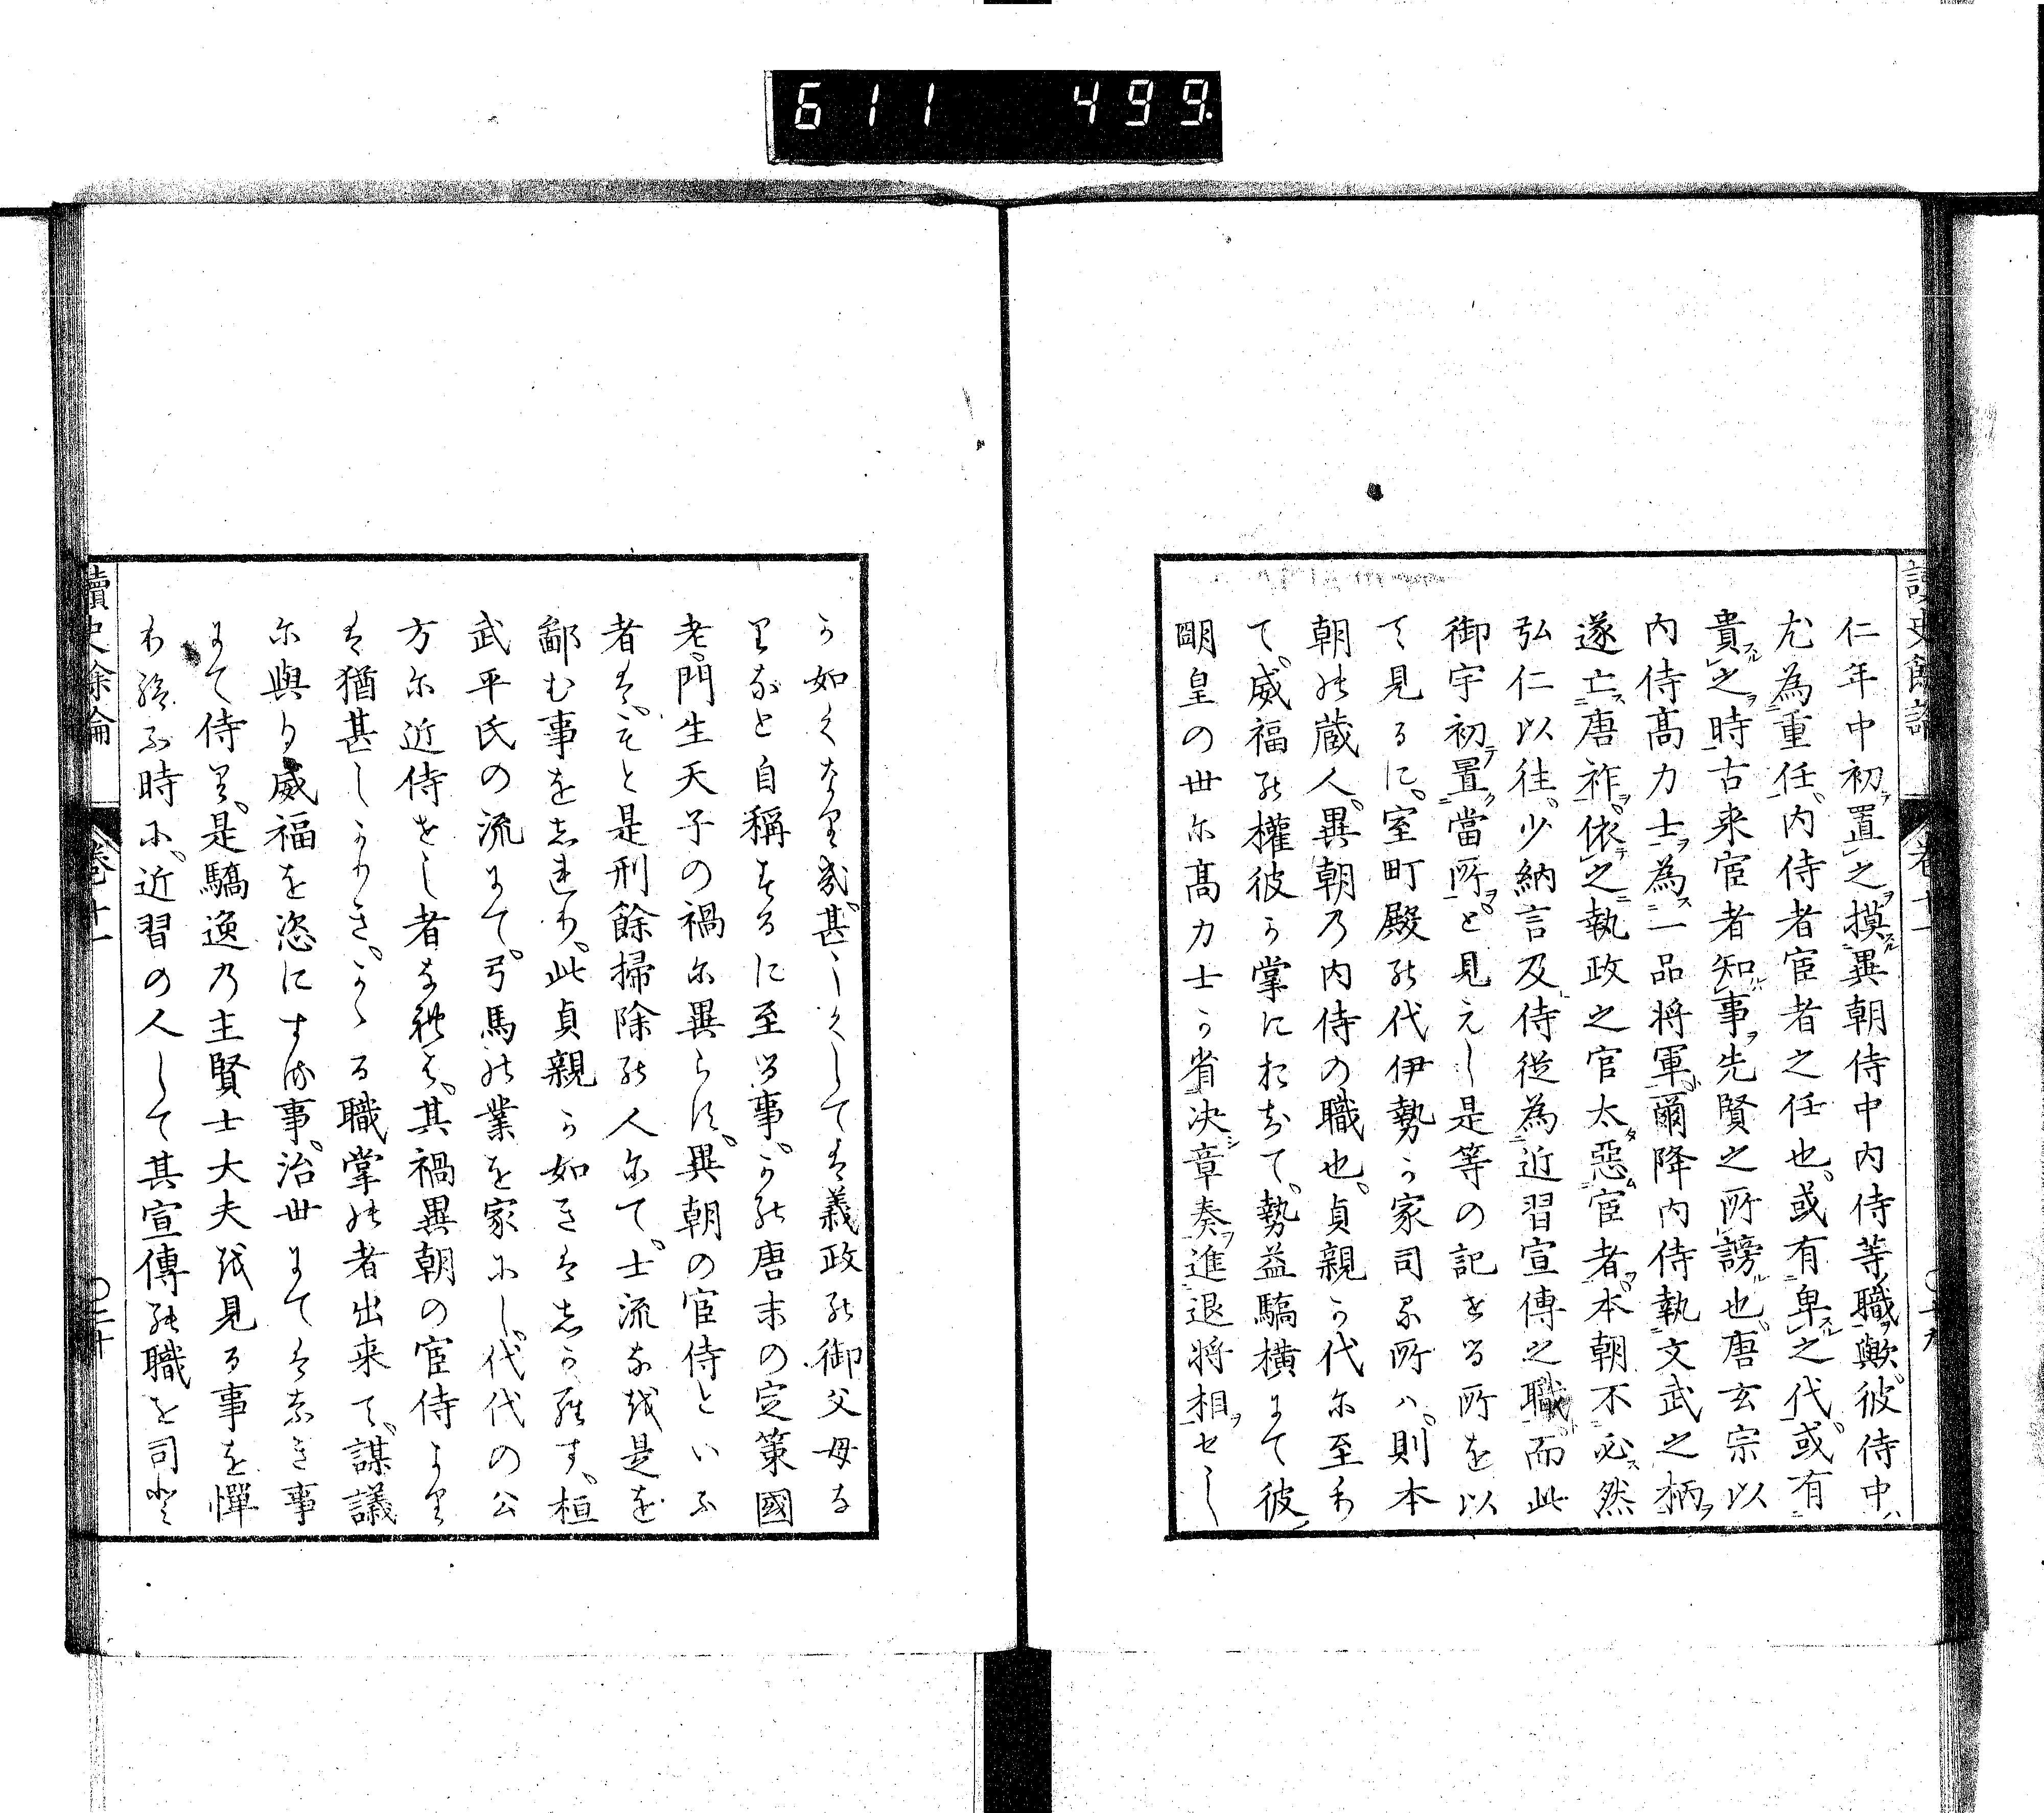 611 499.
讀史餘論 卷十一 〇十九
仁年中初置之摸異朝侍中内侍等職歟彼侍中ハ
尤為重任内侍者宦者之任也或有卑之代或有
貴之時古来宦者知事先賢之所謗也唐玄宗以
内侍髙力士為一品将軍爾降内侍執文武之柄
遂亡唐祚依之執政之官太惡宦者本朝不必然
弘仁以往少納言及侍従為近習宣傳之職而此
御宇初置當所と見えし是等の記せる所を以
て見るに室町殿の代伊勢か家司る所ハ則本
朝の蔵人異朝乃内侍の職也貞親か代に至り
て威福の權彼か掌におちて勢益驕横まて彼
明皇の世に髙力士か省决章奏進退将相せし
か如くなり哉甚しくしては義政の御父母な
りなと自稱するに至る事かの唐末の定策國
老門生天子の禍に異らす異朝の宦侍といふ
者はもと是刑餘掃除の人にて士流なを是を
鄙む事をしれり此貞親か如きはしからす桓
武平氏の流まて弓馬の業を家にし代代の公
方に近侍せし者なれは其禍異朝の宦侍より
は猶甚しかりきかゝる職掌の者出来て謀議
に與り威福を恣にする事治世まてはなき事
まて侍り是驕逸乃主賢士大夫を見る事を憚
り給ふ時に近習の人して其宣傳の職を司と
讀史餘論 卷十一 〇二十